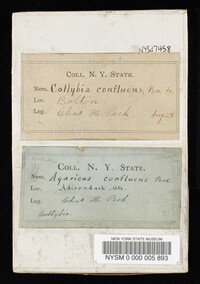 NYSf7458
COLL. N. Y. STATE.
Nom. Collybia confluens, Pers. Fr.
Loc. Bolton
Leg. Chas. H. Peck Aug 28
COLL. N. Y. STATE.
Nom. Agaricus confluens Pers
Loc. Adirondack Mts.
Leg. Chas. H. Peck
Collybia.
NEW YORK STATE MUSEUM
NYSM 0 000 005 893